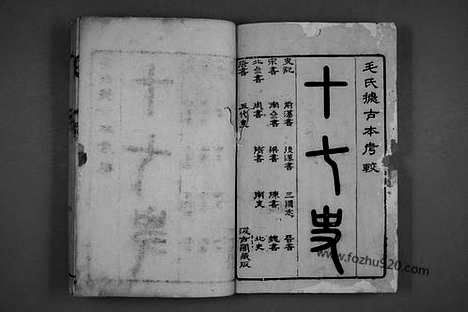 毛氏據古本考較
十七史
史記 前漢書 後漢書 三國志 晉書
宋書 南齊書 梁書 陳書 魏書
北齊書 周書 隋書 南史 北史
唐書 五代史 汲古閣藏版
www.fozhu920.com